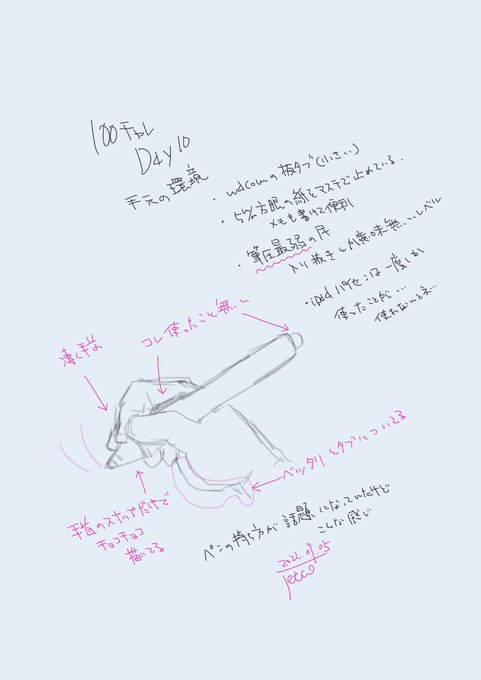 100チャレ
Day 10
手元の環境
・wacomの板タブ(小さい)
・5%方眼の紙をマステで止めている。
メモも書けて便利
・筆圧最弱の民
入り抜きとか意味無い…レベル
・ipad パイセンは一度しか
使ったことが…
使わないとネ…
コレ使ったこと無い
ベッタリ板タブについてる
手首のスナップだけで
チョコチョコ
描いてる
ペンの持ち方が話題になっていたけど
こんな感じ
2022.09.05